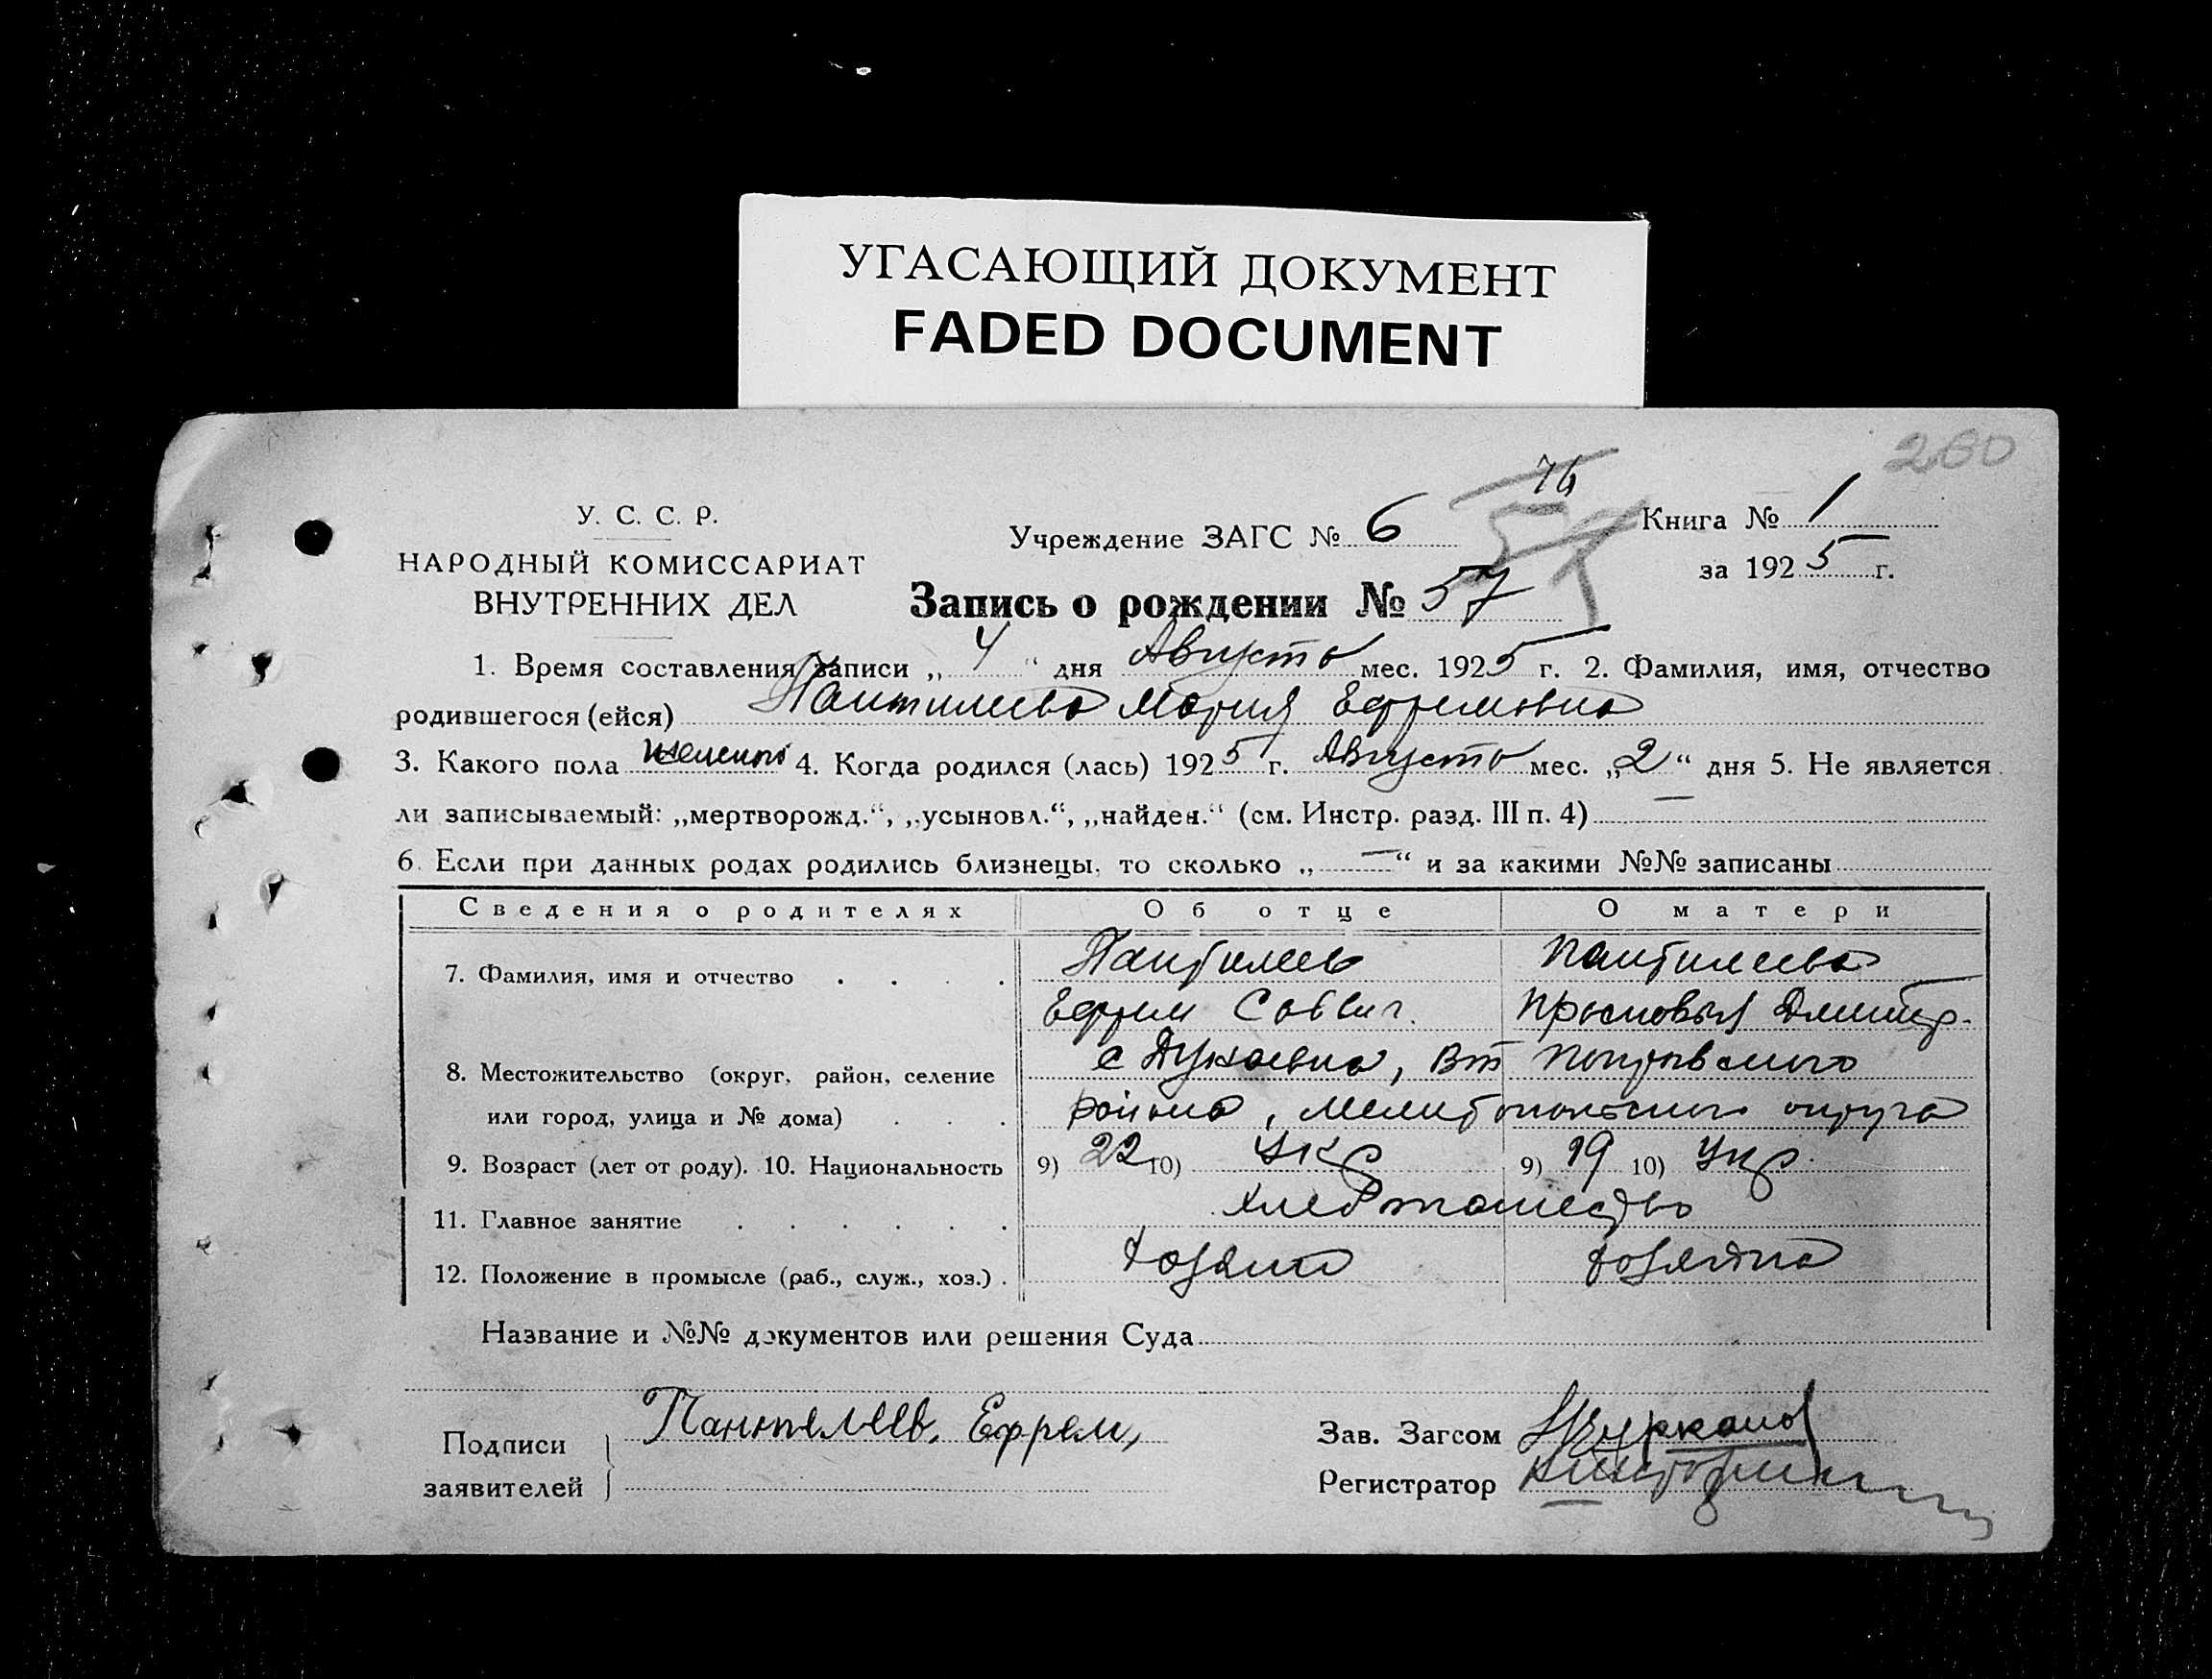 УГАСАЮЩИЙ ДОКУМЕНТ
FADED DOCUMENT
260
У. С. С. Р.
НАРОДНЫЙ КОМИССАРИАТ
ВНУТРЕННИХ ДЕЛ
Учреждение ЗАГС № 6
76
57
Книга № 1
за 1925 г.
Запись о рождении № 57
1. Время составления записи „ 4 “ дня Августа мес. 1925 г. 2. Фамилия, имя, отчество
родившегося (ейся) Пантилеева Мария Ефремовна
3. Какого пола женского 4. Когда родился (лась) 1925 г. Августа мес. „2“ дня 5. Не является
ли записываемый: „мертворожд.“, „усыновл.“, „найден.“ (см. Инстр. разд. III п. 4) —
6. Если при данных родах родились близнецы, то сколько „ — “ и за какими №№ записаны
Сведения о родителях Об отце О матери
7. Фамилия, имя и отчество Пантилеев Пантилеева
Ефрем Саввич. Дмитр.
8. Местожительство (округ, район, селение с Дунаевка, Покровского
или город, улица и № дома) района, Мелитопольского округа
9. Возраст (лет от роду). 10. Национальность 9) 22 10) Укр 9) 19 10) Укр.
11. Главное занятие хлебопашество
12. Положение в промысле (раб., служ., хоз.) хозяин хозяйка
Название и №№ документов или решения Суда
Подписи заявителей Пантелеев, Ефрем,
Зав. Загсом
Регистратор